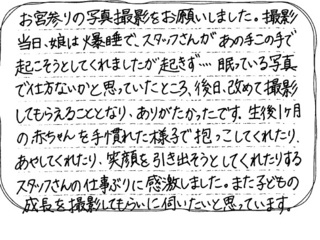 お宮参りの写真撮影をお願いしました。撮影
当日、娘は爆睡で、スタッフさんが あの手この手で
起こそうとしてくれましたが起きず… 眠っている写真
で仕方ないかと思っていたところ、後日、改めて撮影
してもらえることとなり、ありがたかったです。生後1ヶ月
の赤ちゃんを手慣れた様子で抱っこしてくれたり、
あやしてくれたり、笑顔を引き出そうとしてくれたりする
スタッフさんの仕事ぶりに感激しました。また子どもの
成長を撮影してもらいに伺いたいと思っています。